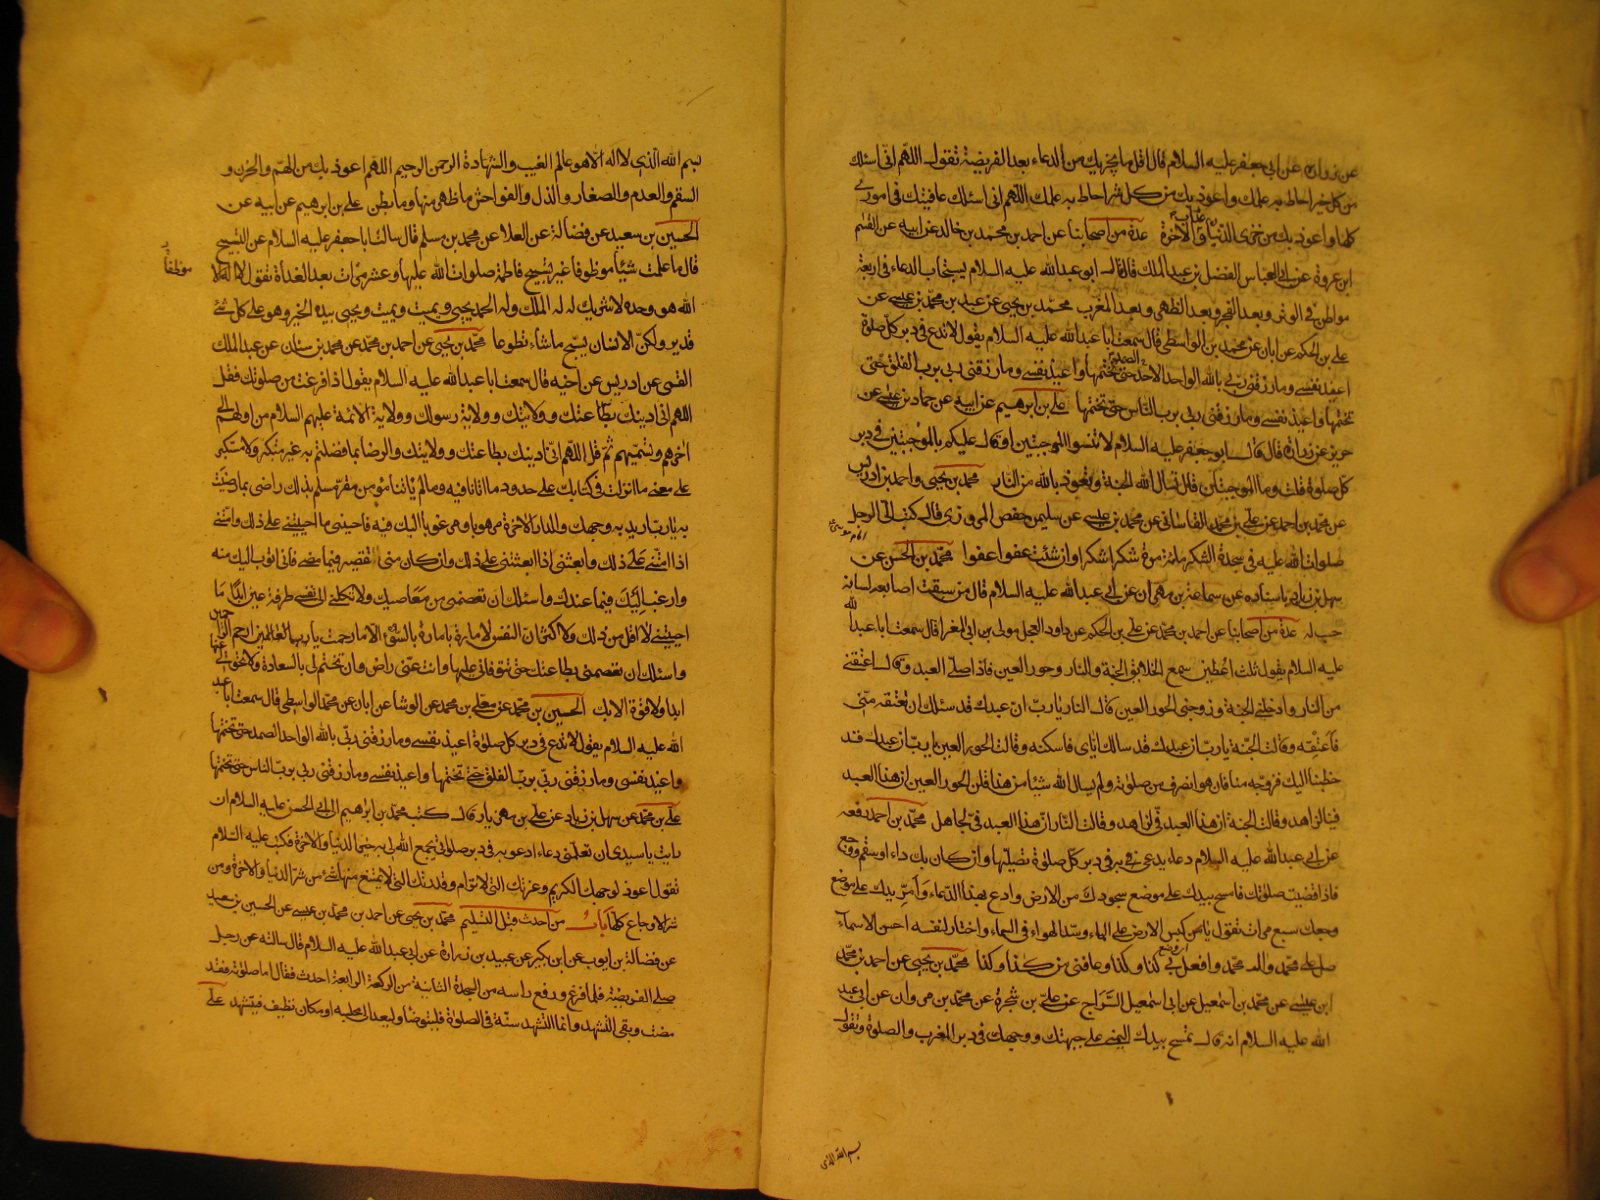 عن زرارة عن ابي جعفر عليه السلام قال اقل ما يجزيك من الدعاء بعد الفريضة تقول اللهم اني اسئلك
من كل خير احاط به علمك واعوذ بك من كل شر احاط به علمك اللهم اني اسئلك عافيتك في اموري
كلها واعوذ بك من خزي الدنيا وعذاب الآخرة عدة من اصحابنا عن احمد بن محمد بن خالد عن ابيه عن القسم
ابن عروة عن ابي العباس الفضل بن عبد الملك قال قال ابو عبد الله عليه السلام يستجاب الدعاء في اربعة
مواطن في الوتر وبعد الفجر وبعد الظهر وبعد المغرب محمد بن يحيى عن عبد بن محمد بن عيسى عن
علي بن الحكم عن ابان عن محمد بن الواسطي قال سمعت ابا عبد الله عليه السلام يقول لا تدع في دبر كل صلوة
اعيذ نفسي وما رزقني ربي بالله الواحد الاحد الصمد حتى تختمها واعيذ نفسي وما رزقني ربي برب الفلق حتى
تختمها واعيذ نفسي وما رزقني ربي برب الناس حتى تختمها علي بن ابرهيم عن ابيه عن حماد بن عيسى عن
حريز عن زرارة قال قال ابو جعفر عليه السلام لا تنسوا الموجبتين او قال عليكم بالموجبتين في دبر
كل صلوة قلت وما الموجبتان قال تسال الله الجنة وتعوذ بالله من النار محمد بن يحيى واحمد بن ادريس
عن محمد بن احمد عن علي بن محمد القاساني عن محمد بن عيسى عن سليمن حفص المروزي قال كتب الى الرجل
صلوات الله عليه في سجدة الشكر مائة مرة شكرا شكرا وان شئت عفوا عفوا محمد بن الحسن عن
سهل بن زياد باسناده عن سماعة بن مهران عن ابي عبد الله عليه السلام قال من سبقت اصابعه لسانه
حسب له عدة من اصحابنا عن احمد بن محمد عن علي بن الحكم عن داود العجلي مولى بن ابي المغرا قال سمعت ابا عبد الله
عليه السلام يقول ثلث اعطين سمع الخلايق الجنة والنار وحور العين فاذا صلى العبد وقال اعتقني
من النار وادخلني الجنة وزوجني الحور العين قالت النار يا رب ان عبدك قد سئلك ان تعتقه مني
فاعتقه وقالت الجنة يا رب ان عبدك قد سالك اياي فاسكنه وقالت الحور العين يا رب ان عبدك قد
خطبنا اليك فزوجه منا فان هو انصرف من صلوته ولم يسال الله شيئا من هذا قلن الحور العين ان هذا العبد
فينا لزاهد وقالت الجنة ان هذا العبد في لزاهد وقالت النار ان هذا العبد في لجاهل محمد بن احمد رفعه
عن ابي عبد الله عليه السلام دعاء يدعى به في دبر كل صلوة تصليها وان كان بك داء او سقم ووجع
فاذا قضيت صلوتك فامسح بيدك على موضع سجودك من الارض وادع بهذا الدعاء وامر بيدك على موضع
وجعك سبع مرات تقول يا من كبس الارض على الماء وسد الهواء في السماء واختار لنفسه احسن الاسماء
صل على محمد وال محمد وافعل بي كذا وكذا وعافني من كذا وكذا محمد بن يحيى عن احمد بن محمد
ابن عيسى عن محمد بن اسمعيل عن ابي اسمعيل السراج عن علي بن شجرة عن محمد بن مروان عن ابي عبد
الله عليه السلام انه قال تمسح بيدك اليمنى على جبهتك ووجهك في دبر المغرب والصلوة وتقول
بسم الله الذي
بسم الله الذي لا اله الا هو عالم الغيب والشهادة الرحمن الرحيم اللهم اعوذ بك من الهم والحزن و
السقم والعدم والصغار والذل والفواحش ما ظهر منها وما بطن علي بن ابرهيم عن ابيه عن
الحسين بن سعيد عن فضالة عن العلا عن محمد بن مسلم قال سالت ابا جعفر عليه السلام عن التسبيح
قال ما علمت شيئا موظوفا غير تسبيح فاطمة صلوات الله عليها وعشر مرات بعد الغداة تقول لا اله الا
موظفا
الله هو وحده لا شريك له له الملك وله الحمد يحيي ويميت ويميت ويحيي بيده الخير وهو على كل شئ
قدير ولكن الانسان يسبح ما شاء تطوعا محمد بن يحيى عن احمد بن محمد عن محمد بن سنان عن عبد الملك
القمي عن ادريس عن اخيه قال سمعت ابا عبد الله عليه السلام يقول اذا فرغت من صلوتك فقل
اللهم اني ادينك بطاعتك وولايتك وولاية رسولك وولاية الائمة عليهم السلام من اولهم الى
اخرهم وتسميهم ثم قل اللهم اني ادينك بطاعتك وولايتك والرضا بما فضلتهم به غير متكبر ولا مستكبر
على معنى ما انزلت في كتابك على حدود ما اتانا فيه وما لم ياتنا مؤمن مقر مسلم بذلك راضي بما رضيت
به يا رب اريد به وجهك والدار الاخرة مرهوبا ومرغوبا اليك فيه فاحيني ما احييتني على ذلك وامتني
اذا امتني على ذلك وابعثني اذا ابعثتني على ذلك وان كان مني تقصير فيما مضى فاني اتوب اليك منه
وارغب اليك فيما عندك واسئلك ان تعصمني من معاصيك ولا تكلني الى نفسي طرفة عين ابدا ما
احييتني لا اقل من ذلك ولا اكثر ان النفس لامارة بالسوء الا ما رحمت يا رب العالمين يا ارحم الراحمين
واسئلك ان تعصمني بطاعتك حتى تتوفاني عليها وانت عني راض وان تختم لي بالسعادة ولا تحولني عنها
ابدا ولا قوة الا بك الحسين بن محمد عن معلى بن محمد عن الوشا عن ابان عن محمد الواسطي قال سمعت ابا عبد
الله عليه السلام يقول لا تدع في دبر كل صلوة اعيذ نفسي وما رزقني ربي بالله الواحد الصمد حتى تختمها
واعيذ نفسي وما رزقني ربي برب الفلق حتى تختمها واعيذ نفسي وما رزقني ربي برب الناس حتى تختمها
علي بن محمد عن سهل بن زياد عن علي بن مهزيار قال كتب محمد بن ابرهيم الى ابي الحسن عليه السلام ان
رايت يا سيدي ان تعلمني دعاء ادعو به في دبر صلواتي يجمع الله لي به خير الدنيا والاخرة فكتب عليه السلام
تقول اعوذ بوجهك الكريم وعزتك التي لا ترام وقدرتك التي لا يمتنع منها شئ من شر الدنيا والاخرة ومن
شر الاوجاع كلها باب من احدث قبل التسليم محمد بن يحيى عن احمد بن محمد بن عيسى عن الحسين بن سعيد
عن فضالة بن ايوب عن ابن بكير عن عبيد بن زرارة عن ابي عبد الله عليه السلام قال سالته عن رجل
صلى الفريضة فلما فرغ ورفع راسه من السجدة الثانية من الركعة الرابعة احدث فقال اما صلوته فقد
مضت وبقي التشهد وانما التشهد سنة في الصلوة فليتوضا وليعد الى مجلسه او مكان نظيف فيتشهد علي